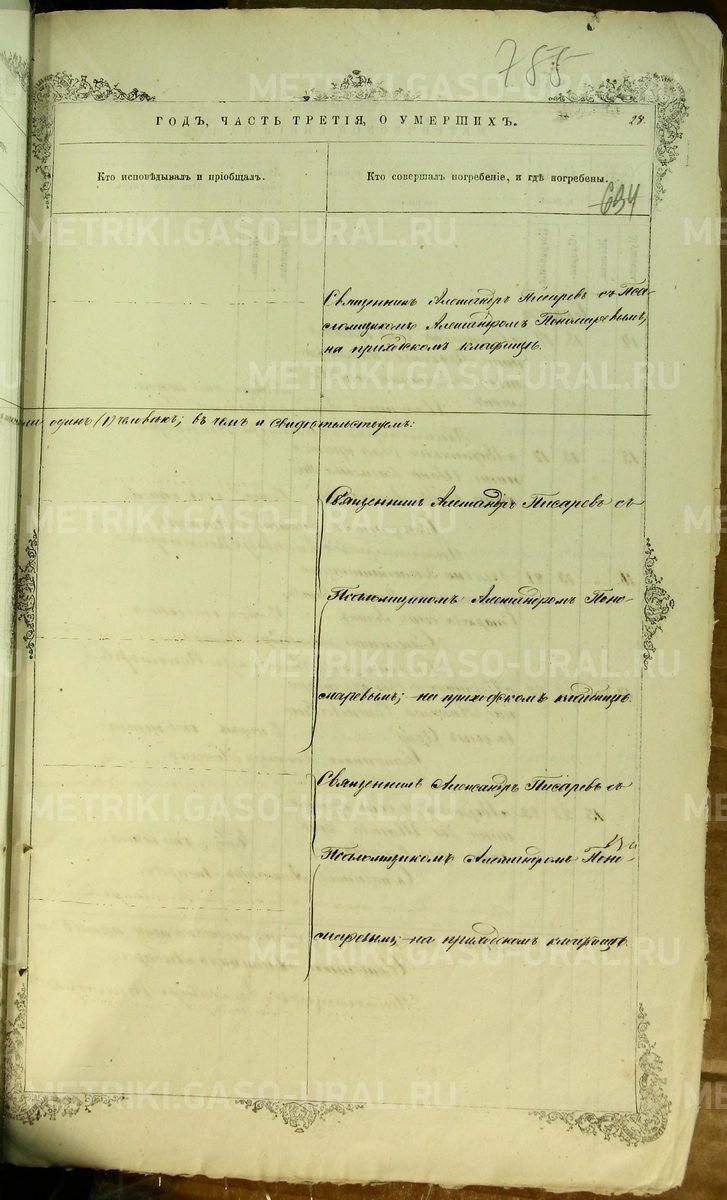 785
ГОДЪ, ЧАСТЬ ТРЕТІЯ, О УМЕРШИХЪ.
Кто исповѣдывалъ и пріобщалъ.
Кто совершалъ погребеніе, и гдѣ погребены.
634
Священникъ Александръ Писаревъ съ Пса-
ломщикомъ Александромъ Пономаревымъ,
на приходскомъ кладбищѣ.
одинъ (1) человѣкъ; въ чемъ и свидѣтельствуемъ:
Священникъ Александръ Писаревъ съ
Псаломщикомъ Александромъ Поно-
маревымъ; на приходскомъ кладбищѣ.
Священникъ Александръ Писаревъ съ
Псаломщикомъ Александромъ Поно-
маревымъ; на приходскомъ кладбищѣ.
METRIKI.GASO-URAL.RU